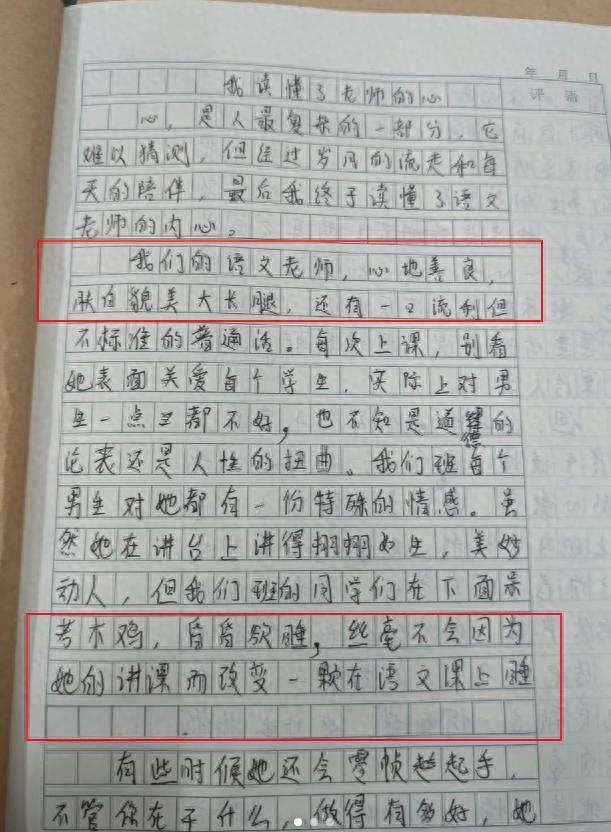 年 月 日
评语
我读懂了老师的心
心,是人最复杂的一部分,它
难以猜测,但经过岁月的流走和每
天的陪伴,最后我终于读懂了语文
老师的内心。
我们的语文老师,心地善良,
肤白貌美大长腿,还有一口流利但
不标准的普通话。每次上课,别看
她表面关爱每个学生,实际上对男
生一点豆都不好,也不知是道德的
沦丧还是人性的扭曲。我们班每个
男生对她都有一份特殊的情感。虽
然她在讲台上讲得栩栩如生,美妙
动人,但我们班的同学们在下面呆
若木鸡,昏昏欲睡,丝毫不会因为
她的讲课而改变一颗在语文课上睡
有些时候她还会零帧起起手,
不管你在干什么,做得有多好,她